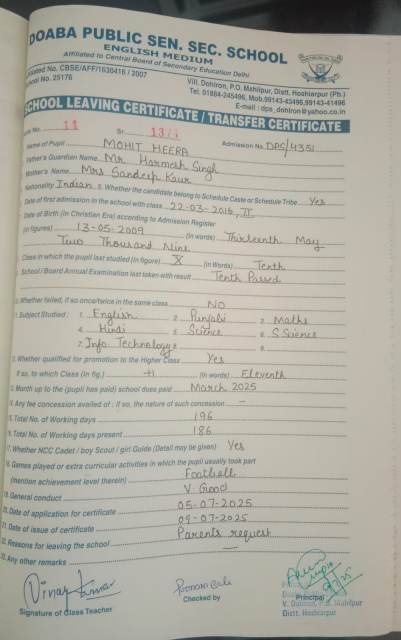 DOABA PUBLIC SEN. SEC. SCHOOL
ENGLISH MEDIUM
Affiliated to Central Board of Secondary Education Delhi
No. CBSE/AFF/1630416 / 2007
No. 25176
Vill. Dohlron, P.O. Mahilpur, Distt. Hoshiarpur (Pb.)
Tel. 01884-245496, Mob.99143-43496,99143-41496
E-mail : dps_dohlron@yahoo.co.in
SCHOOL LEAVING CERTIFICATE / TRANSFER CERTIFICATE
No. 11 Sr. Admission No. DPS/4351
Name of Pupil MOHIT HEERA
Father's Guardian Name Mr. Harmesh Singh
Mother's Name Mrs Sandeep Kaur
Nationality Indian Whether the candidate belong to Schedule Caste or Schedule Tribe Yes
Date of first admission in the school with class 22-03-2016, II
Date of Birth (in Christian Era) according to Admission Register
(in figures) 13-05-2009 (in words) Thirteenth May
Two Thousand Nine
Class in which the pupil last studied (in figure) X (in Words) Tenth
School / Board Annual Examination last taken with result Tenth Passed
Whether failed, if so once/twice in the same class NO
Subject Studied : 1. English 2. Punjabi 3. Maths
4. Hindi 5. Science 6. S. Science
7. Info. Technology 8. 9.
Whether qualified for promotion to the Higher Class Yes
If so, to which Class (in fig.) (in words) Eleventh
Month up to the (pupil has paid) school dues paid March 2025
Any fee concession availed of : if so, the nature of such concession –
Total No. of Working days 196
Total No. of Working days present 186
17. Whether NCC Cadet / boy Scout / girl Guide (Detail may be given) Yes
18. Games played or extra curricular activities in which the pupil usually took part
(mention achievement level therein) Football
19. General conduct V. Good
20. Date of application for certificate 05-07-2025
21. Date of issue of certificate 09-07-2025
22. Reasons for leaving the school Parents request
23. Any other remarks —
Vinay Kumar
Signature of Class Teacher
Poonam Bali
Checked by
Principal
Distt. Hoshiarpur